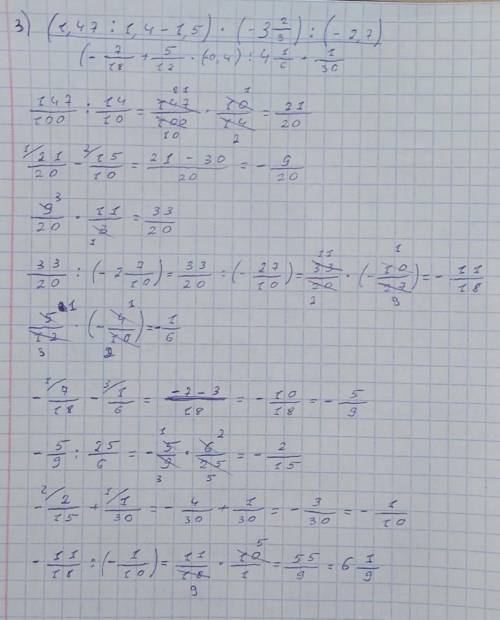 3) (1,47 : 1,4 - 1,5) · (-3 2/3) : (-2,7)
(-7/18 + 5/12 · (-0,4) : 4 1/6 + 1/30
147/100 : 14/10 = 147/100 · 10/14 = 21/20
21/20 - 15/10 = 21 - 30/20 = -9/20
9/20 · 11/3 = 33/20
33/20 : (-2 7/10) = 33/20 : (-27/10) = 33/20 · (-10/27) = -11/18
5/12 · (-4/10) = -1/6
-7/18 - 1/6 = -7-3/18 = -10/18 = -5/9
-5/9 : 25/6 = -5/9 · 6/25 = -2/15
-2/15 + 1/30 = -4/30 + 1/30 = -3/30 = -1/10
-11/18 : (-1/10) = 11/18 · 10/1 = 55/9 = 6 1/9